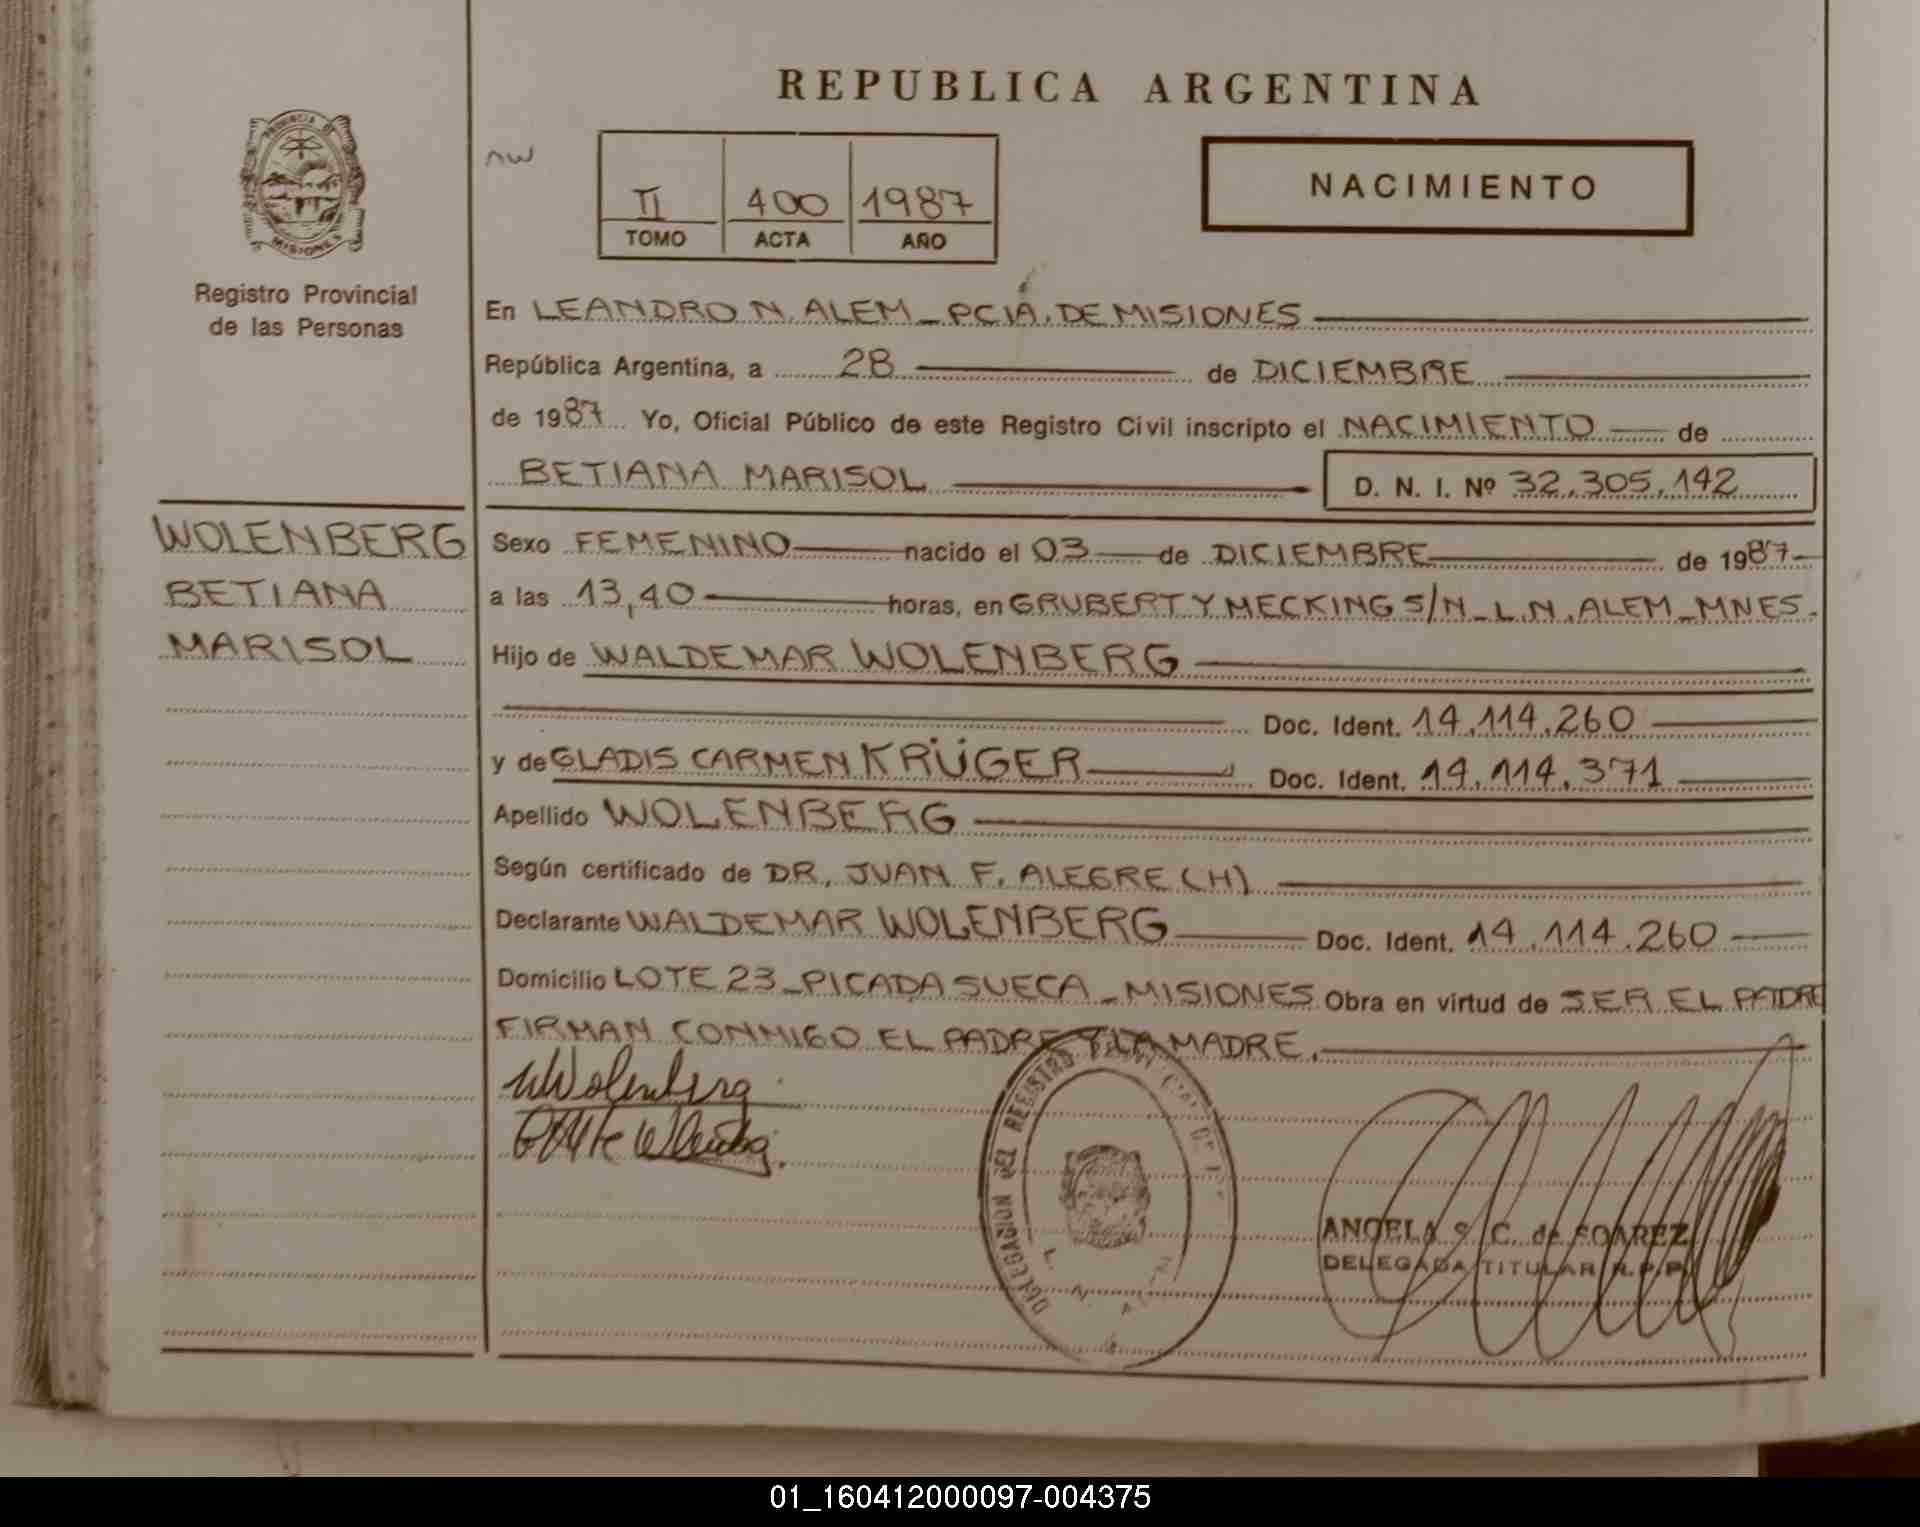 REPUBLICA ARGENTINA
PROVINCIA DE
MISIONES
Registro Provincial
de las Personas
nw
II 400 1987
TOMO ACTA AÑO
NACIMIENTO
En LEANDRO N. ALEM - PCIA. DE MISIONES
República Argentina, a 28 de DICIEMBRE
de 1987 Yo, Oficial Público de este Registro Civil inscripto el NACIMIENTO de
BETIANA MARISOL D. N. I. Nº 32.305.142
WOLENBERG
BETIANA
MARISOL
Sexo FEMENINO nacido el 03 de DICIEMBRE de 1987
a las 13,40 horas, en GRUBERT Y MECKING S/N - L.N. ALEM - MNES.
Hijo de WALDEMAR WOLENBERG
Doc. Ident. 14.114.260
y de GLADIS CARMEN KRÜGER Doc. Ident. 14.114.371
Apellido WOLENBERG
Según certificado de DR. JUAN F. ALEGRE (H)
Declarante WALDEMAR WOLENBERG Doc. Ident. 14.114.260
Domicilio LOTE 23 - PICADA SUECA - MISIONES Obra en virtud de SER EL PADRE
FIRMAN CONMIGO EL PADRE Y LA MADRE.
WWolenberg
DELEGACION DEL REGISTRO
L. N. ALEM
ANGELA S. C. de SOAREZ
DELEGADA TITULAR R.P.P.
01_160412000097-004375